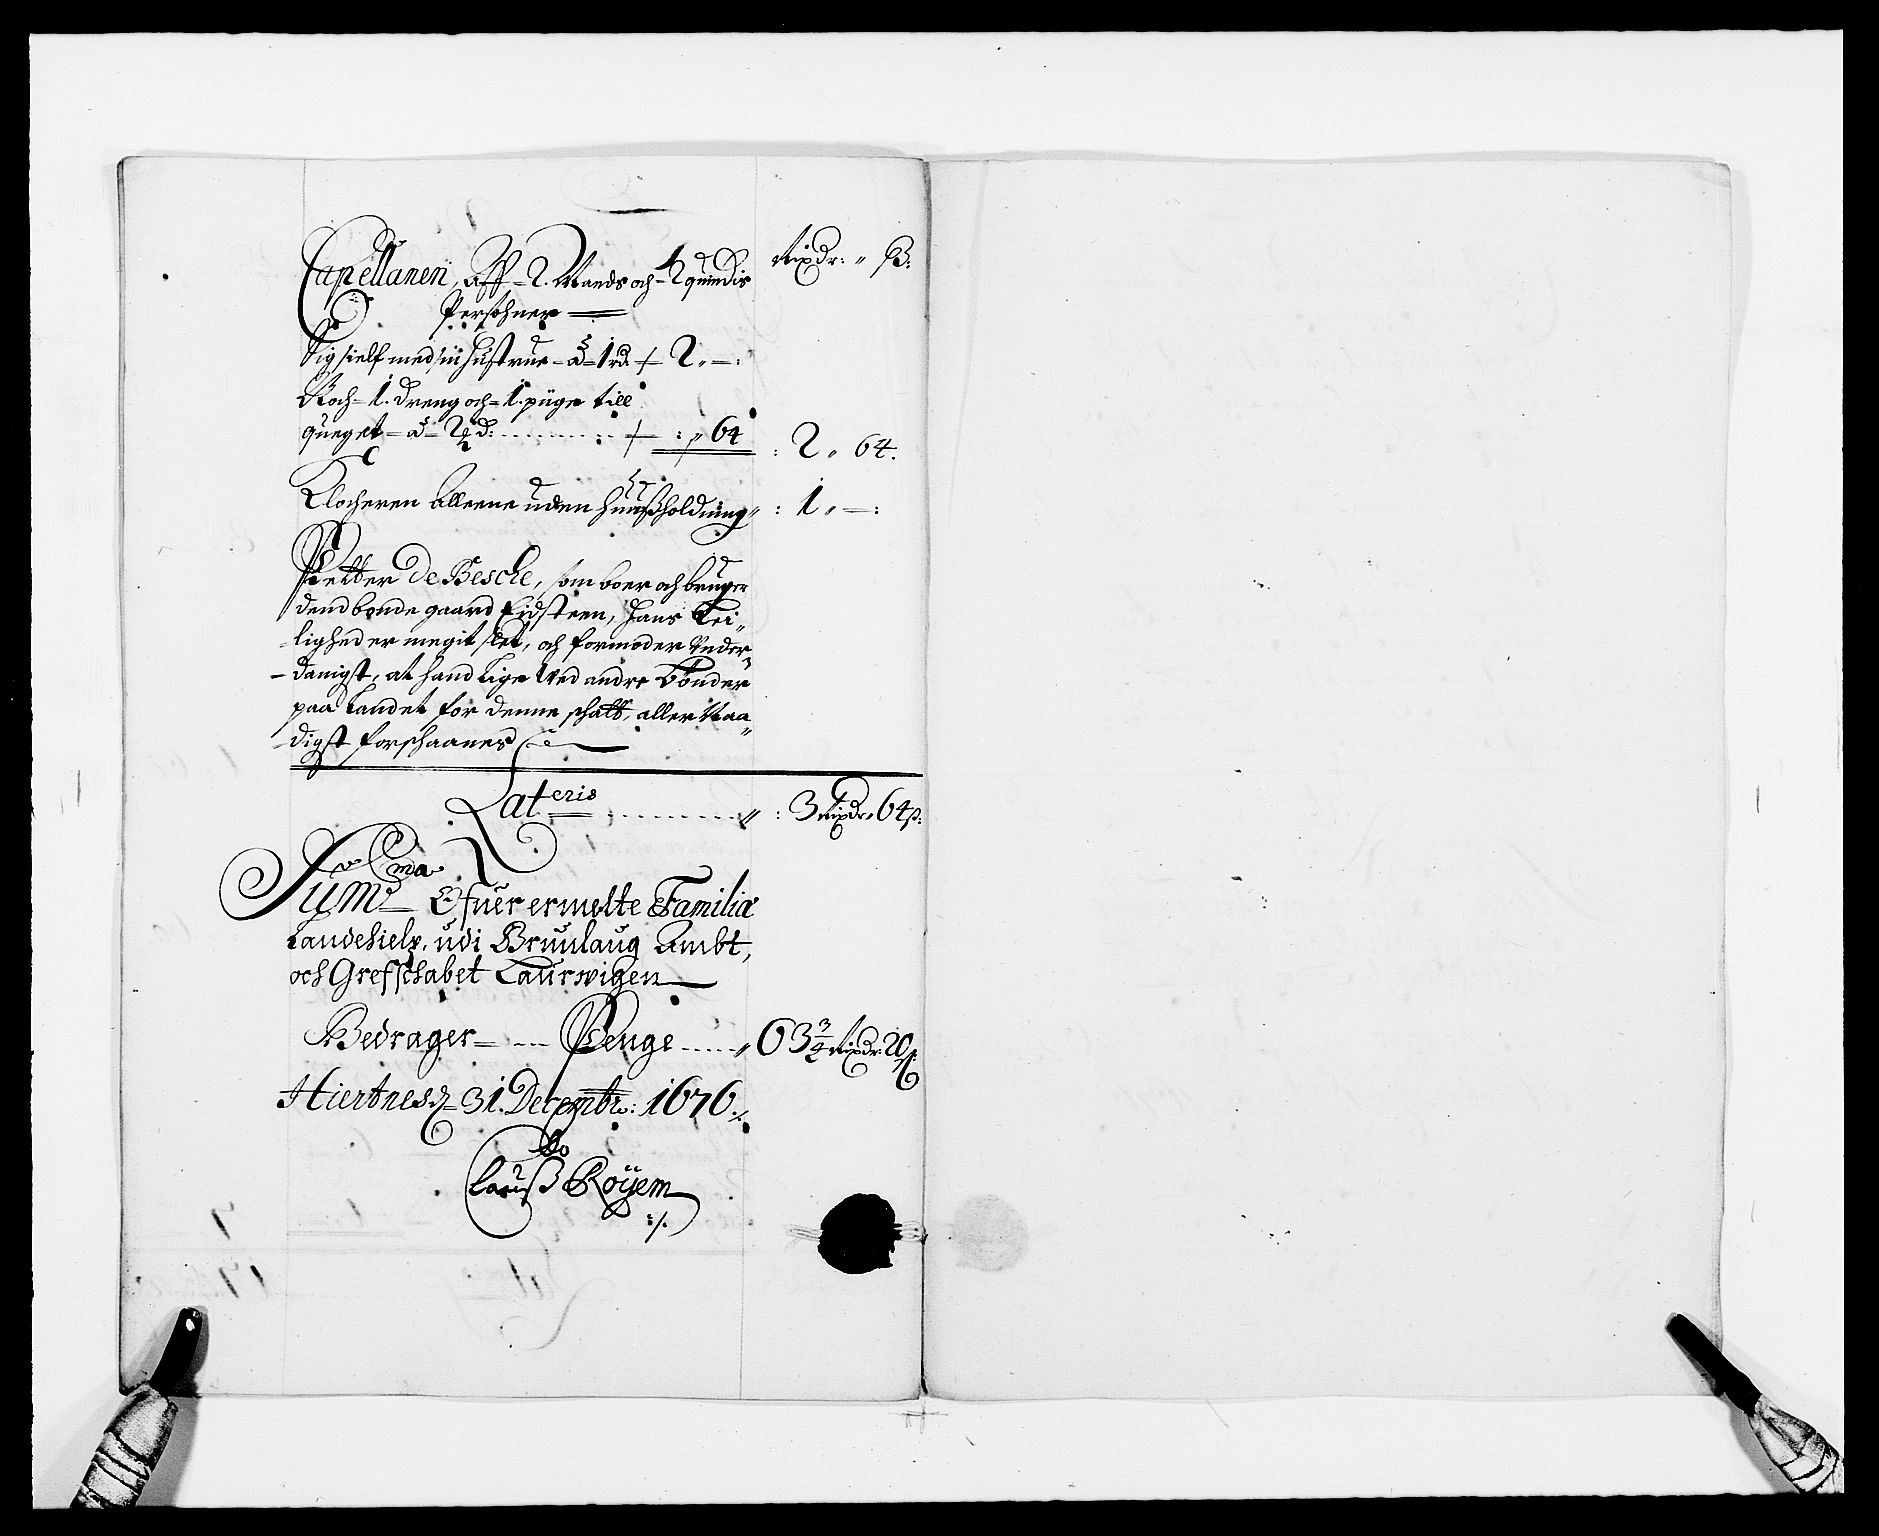 Rixdr: " ß:
Capellanen, aff = 2. Mands och = 2 quindis
Persohner
Sig sielf med sin hustrue - a - 1 rd 2 " — :
Noch = 1. dreng och = 1. piige till
qveget - a - : " 64 : 2 " 64.
Klocheren alleene uden huusholdning " : 1 " — :
Petter De Besche, som boer och bruger
dend bonde gaard Eidsteen, hans Lei"
lighed er megit slet, och formoder Under"
danigst, at hand lige ved andre bønder
paa Landet for denne schatt, aller Naa"
digst forschaanes
Lateris " : 3 Rixdr " 64 ß:
Suma Ofuer ermelte Familie
Landehielp, udi Brunlaug Ambt,
och Grefschabet Laurwigen
Bedrager = Penge " 63 3/4 Rixdr: 20 ß:
Hiertnes d = 31. Decembr: 1676 ./.
Clauß Röyem
:/.